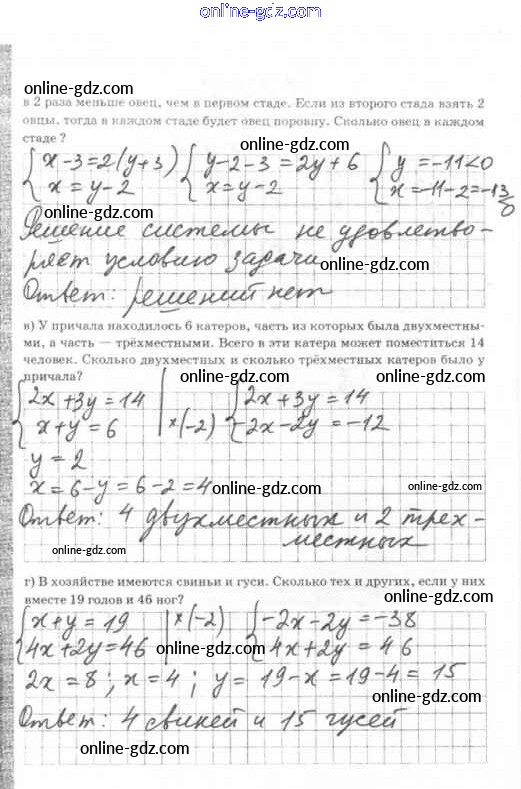 online-gdz.com
online-gdz.com
в 2 раза меньше овец, чем в первом стаде. Если из второго стада взять 2
овцы, тогда в каждом стаде будет овец поровну. Сколько овец в каждом
стаде?
online-gdz.com
x-3=2(y+3) y-2-3=2y+6 y=-11<0
x=y-2 x=y-2 x=-11-2=-13<0
online-gdz.com
online-gdz.com
Решение системы не удовлетво-
ряет условию задачи
online-gdz.com
Ответ: решений нет
online-gdz.com
в) У причала находилось 6 катеров, часть из которых была двухместны-
ми, а часть — трёхместными. Всего в эти катера может поместиться 14
человек. Сколько двухместных и сколько трёхместных катеров было у
причала?
online-gdz.com
online-gdz.com
2x+3y=14 2x+3y=14
x+y=6 |×(-2) -2x-2y=-12
y=2
x=6-y=6-2=4
online-gdz.com
online-gdz.com
Ответ: 4 двухместных и 2 трех-
местных
online-gdz.com
г) В хозяйстве имеются свиньи и гуси. Сколько тех и других, если у них
вместе 19 голов и 46 ног?
online-gdz.com
x+y=19 |×(-2) -2x-2y=-38
4x+2y=46 4x+2y=46
online-gdz.com
2x=8; x=4; y=19-x=19-4=15
online-gdz.com
Ответ: 4 свиней и 15 гусей
online-gdz.com